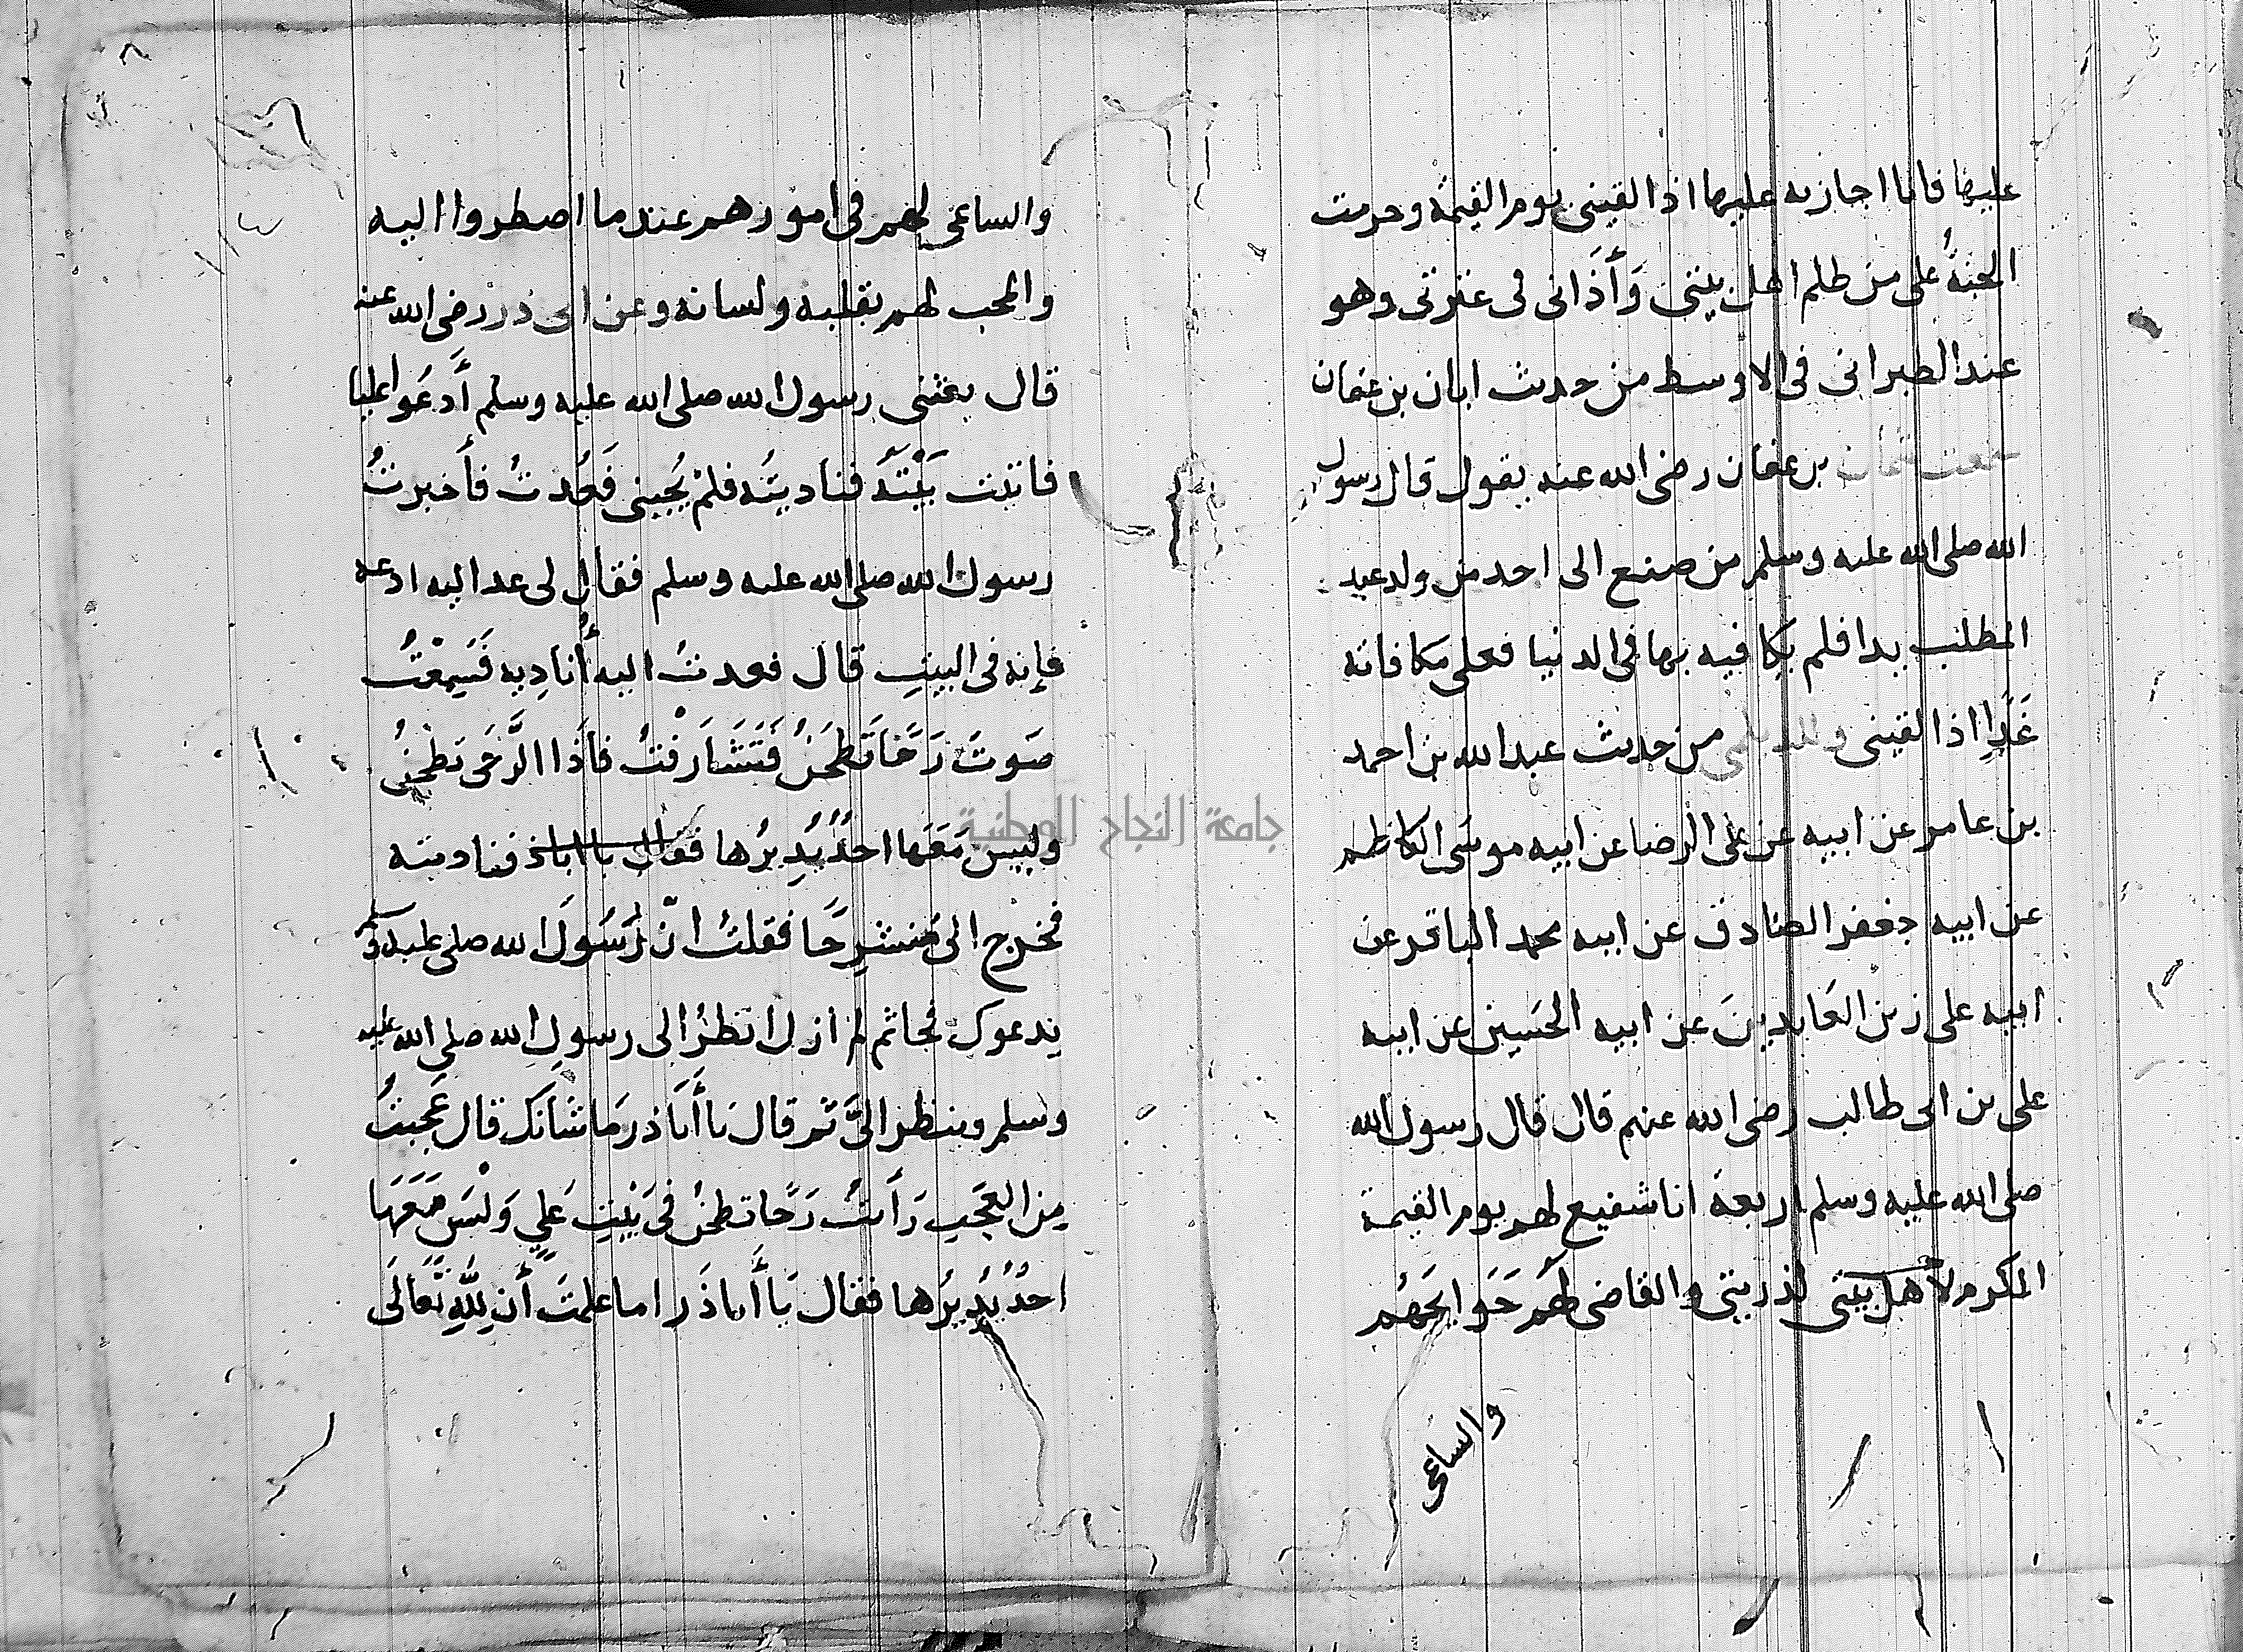 عليها فانا اجازيه عليها اذا لقينى يوم القيمة وحرمت
الجنةُ على من ظلم اهل بيتى وَأَذَانى فى عترتى وهو
عند الطبرانى فى الاوسط من حديث ابان بن عثمان
سمعت عثمان بن عفان رضى الله عنه يقول قال رسول
الله صلى الله عليه وسلم من صنع الى احد من ولد عبد
المطلب يدا فلم يكافيه بها فى الدنيا فعلى مكافاته
غَدًا اذا لقينى وللديلمى من حديث عبد الله بن احمد
بن عامر عن ابيه عن على الرضا عن ابيه موسَى الكاظم
عن ابيه جعفر الصادق عن ابيه محمد الباقر عن
ابيه على زين العَابدينَ عن ابيه الحُسَين عن ابيه
على بن ابى طالب رضى الله عنهم قال قال رسول الله
صلى الله عليه وسلم اربعة انا شفيع لهم يوم القيمة
المكرم لأهل بيتى لذريتى والقاضى لهُم حَوايجَهُم
والساعى
٨
والساعى لهم فى امورهم عندما اضطروا اليه
والمحب لهم بقلبه ولسانه وعن ابى ذر رضى الله عنه
قال بعثنى رسول الله صلى الله عليه وسلم أَدعُوا عليا
فاتيت بَيْتَهُ فناديتُه فلمْ يُجبنى فَعُدتُ فأَخبرتُ
رسول الله صلى الله عليه وسلم فقال لى عد اليه ادعه
فإنه فى البيتِ قال فعدتُ اليه أُنادِيه فَسَمِعْتُ
صَوتَ رَحًا تَطحَنُ فَتَشَارَفْتُ فأذَا الرَّحَى تطحنُ
وليس مَعَهَا احَدٌ يُدِيرُها فقال يا اباذ فناديته
فخرج الى مُنشرِحًا فقلتُ انّ رَسُولَ الله صلى عليه وسلم
يدعوك فجا ثم لم ازل انظرُ الى رسولِ الله صلى الله عليه
وسلم وينظر الىَّ ثم قال يا أَبَا ذر مَا شَانك قال عَجبتُ
مِن العَجَبِ رَأَيتُ رَحًا تطحنُ فى بَيْتِ عَلِىٍ وَلْيسَ مَعَهَا
احدٌ يُدِيرُها فقال يَا أَبا ذَر اما علمتَ أَن لِلَّهِ تَعَالَى
جامعة النجاح الوطنية